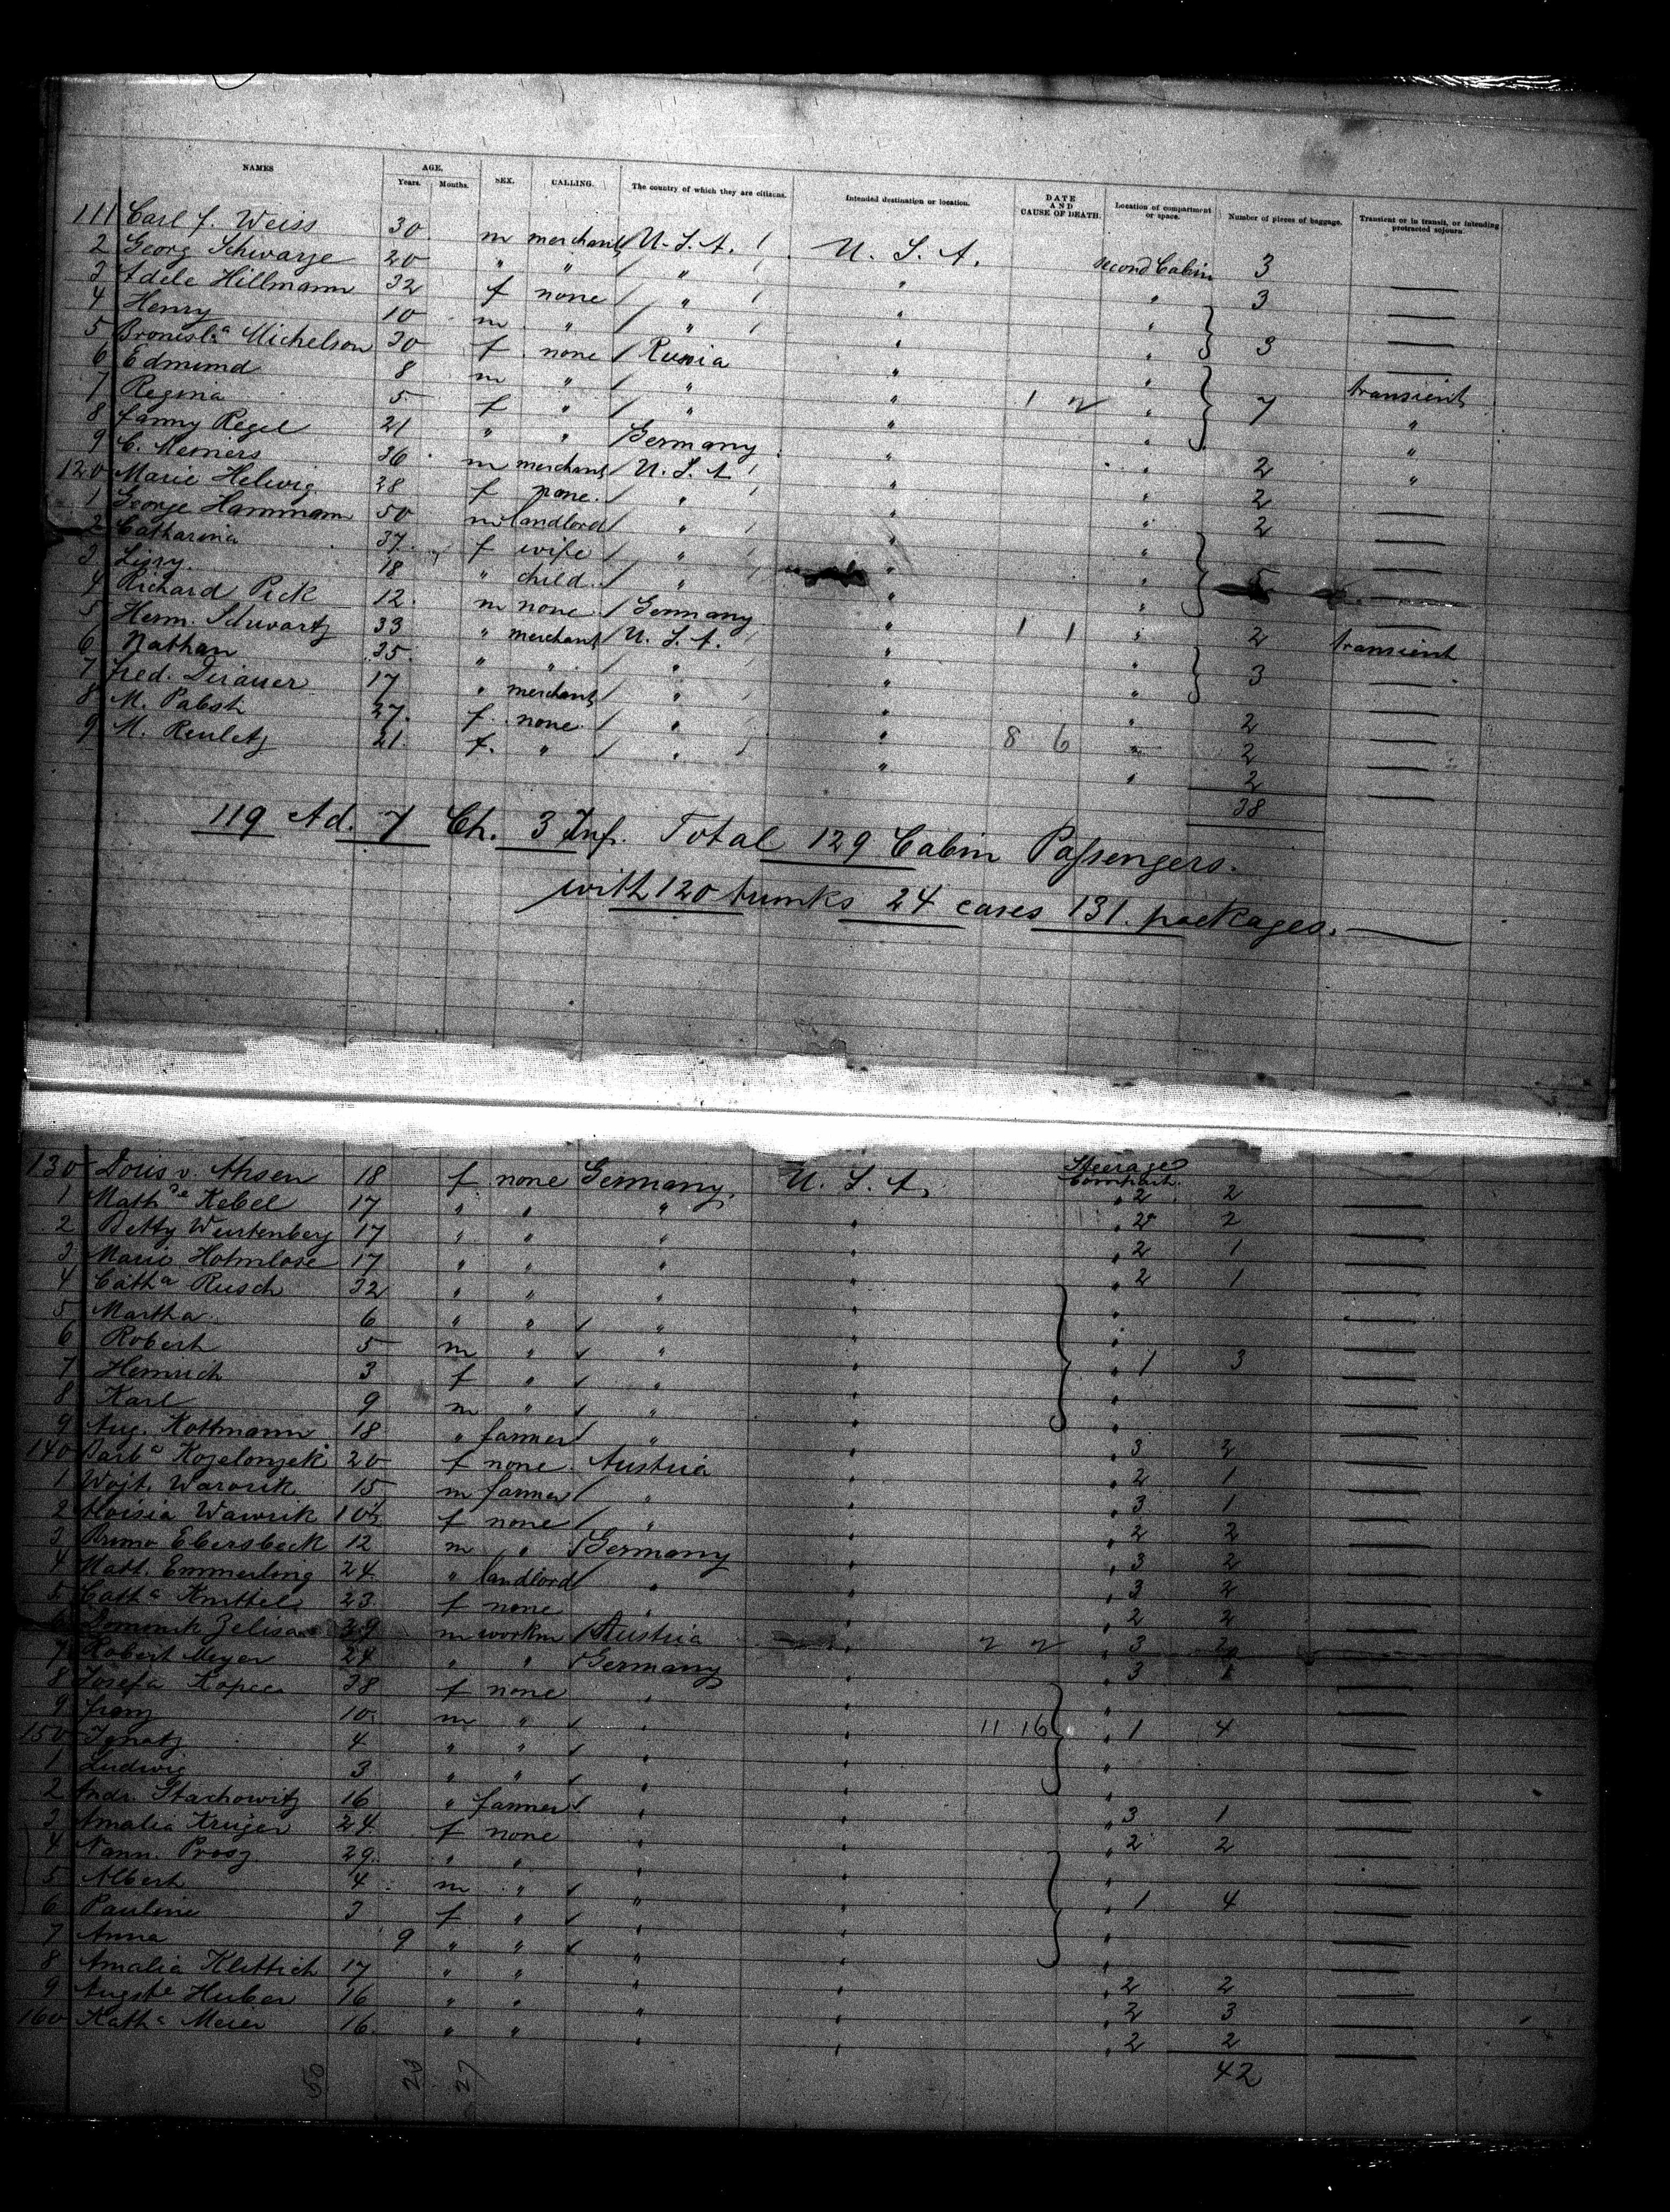 NAMES AGE. Years. Months. SEX. CALLING. The country of which they are citizens. Intended destination or location. DATE AND CAUSE OF DEATH. Location of compartment or space. Number of pieces of baggage. Transient or in transit, or intending protracted sojourn.
111 Carl f. Weiss 30 m merchant U.S.A. U.S.A. second Cabin 3 —
2 Georg Schwarze 20 " " " " " 3 —
3 Adele Hillmann 32 f none " " "
4 Henry 10 m " " " " 3 —
5 Bronisla Michelson 30 f none Russia " " transient
6 Edmund 8 m " " " " 7 "
7 Regina 5 f " " " 1 2 " "
8 Fanny Regel 21 " " Germany " " 2 "
9 C. Meiners 36 m merchant U.S.A. " " 2 —
120 Marie Helwig 28 f none " " " 2 —
1 George Hammann 50 m landlord " " " —
2 Catharina 37 f wife " " " 5 —
3 Lizzy 18 " child " " " —
4 Richard Pick 12 m none Germany " 1 1 " 2 transient
5 Herm. Schwartz 33 " merchant U.S.A. " " 3 —
6 Nathan 35 " " " " " —
7 Fred. 17 " merchant " " " 2 —
8 M. Pabst 27 f none " " 8 6 " 2 —
9 M. Reuletz 21 f. " " " " 2 —
38
119 Ad. 7 Ch. 3 Inf. Total 129 Cabin Passengers.
with 120 trunks 24 cases 131 packages. —
130 Doris v. Ahsen 18 f none Germany U.S.A. Steerage Compart. 2 2 —
1 Mathde Kebel 17 " " " " " 2 2 —
2 Betty Wertenberg 17 " " " " " 2 1 —
3 Marie Holmlose 17 " " " " " 2 1 —
4 Catha Rusch 32 " " " " " —
5 Martha 6 " " " " " —
6 Robert 5 m " " " " 1 3 —
7 Heinrich 3 f " " " " —
8 Karl 9 m " " " " —
9 Aug. Kottmann 18 " farmer " " " 3 2 —
140 Barba Kozelonzek 20 f none Austria " " 2 1 —
1 Wojt. Warorik 15 m farmer " " " 3 1 —
2 Aloisia Wawrik 10½ f none " " " 2 2 —
3 Bruno Ebersbeck 12 m " Germany " " 3 2 —
4 Matt. Emmerling 24 " landlord " " " 3 2 —
5 Catha Knittel 23 f none " " " 2 2 —
6 Dominik Zelisa 39 m workm Austria " 2 2 " 3 2 —
7 Robert Meyer 24 " " Germany " " 3 1 —
8 Josefa Kopcca 38 f none " " " —
9 Franz 10 m " " " 11 16 " 1 4 —
150 Ignatz 4 " " " " " —
1 Ludwig 3 " " " " " —
2 Andr. Stachowitz 16 " farmer " " " 3 1 —
3 Amalia Krüger 24 f none " " " 2 2 —
4 Nann. Prosz 29 " " " " " —
5 Albert 4 m " " " " 1 4 —
6 Pauline 3 f " " " " —
7 Anna 9 " " " " " —
8 Amalia Klettich 17 " " " " " 2 2 —
9 Auguste Huber 16 " " " " " 2 3 —
160 Katha Meier 16 " " " " " 2 2 —
42
50 23 27